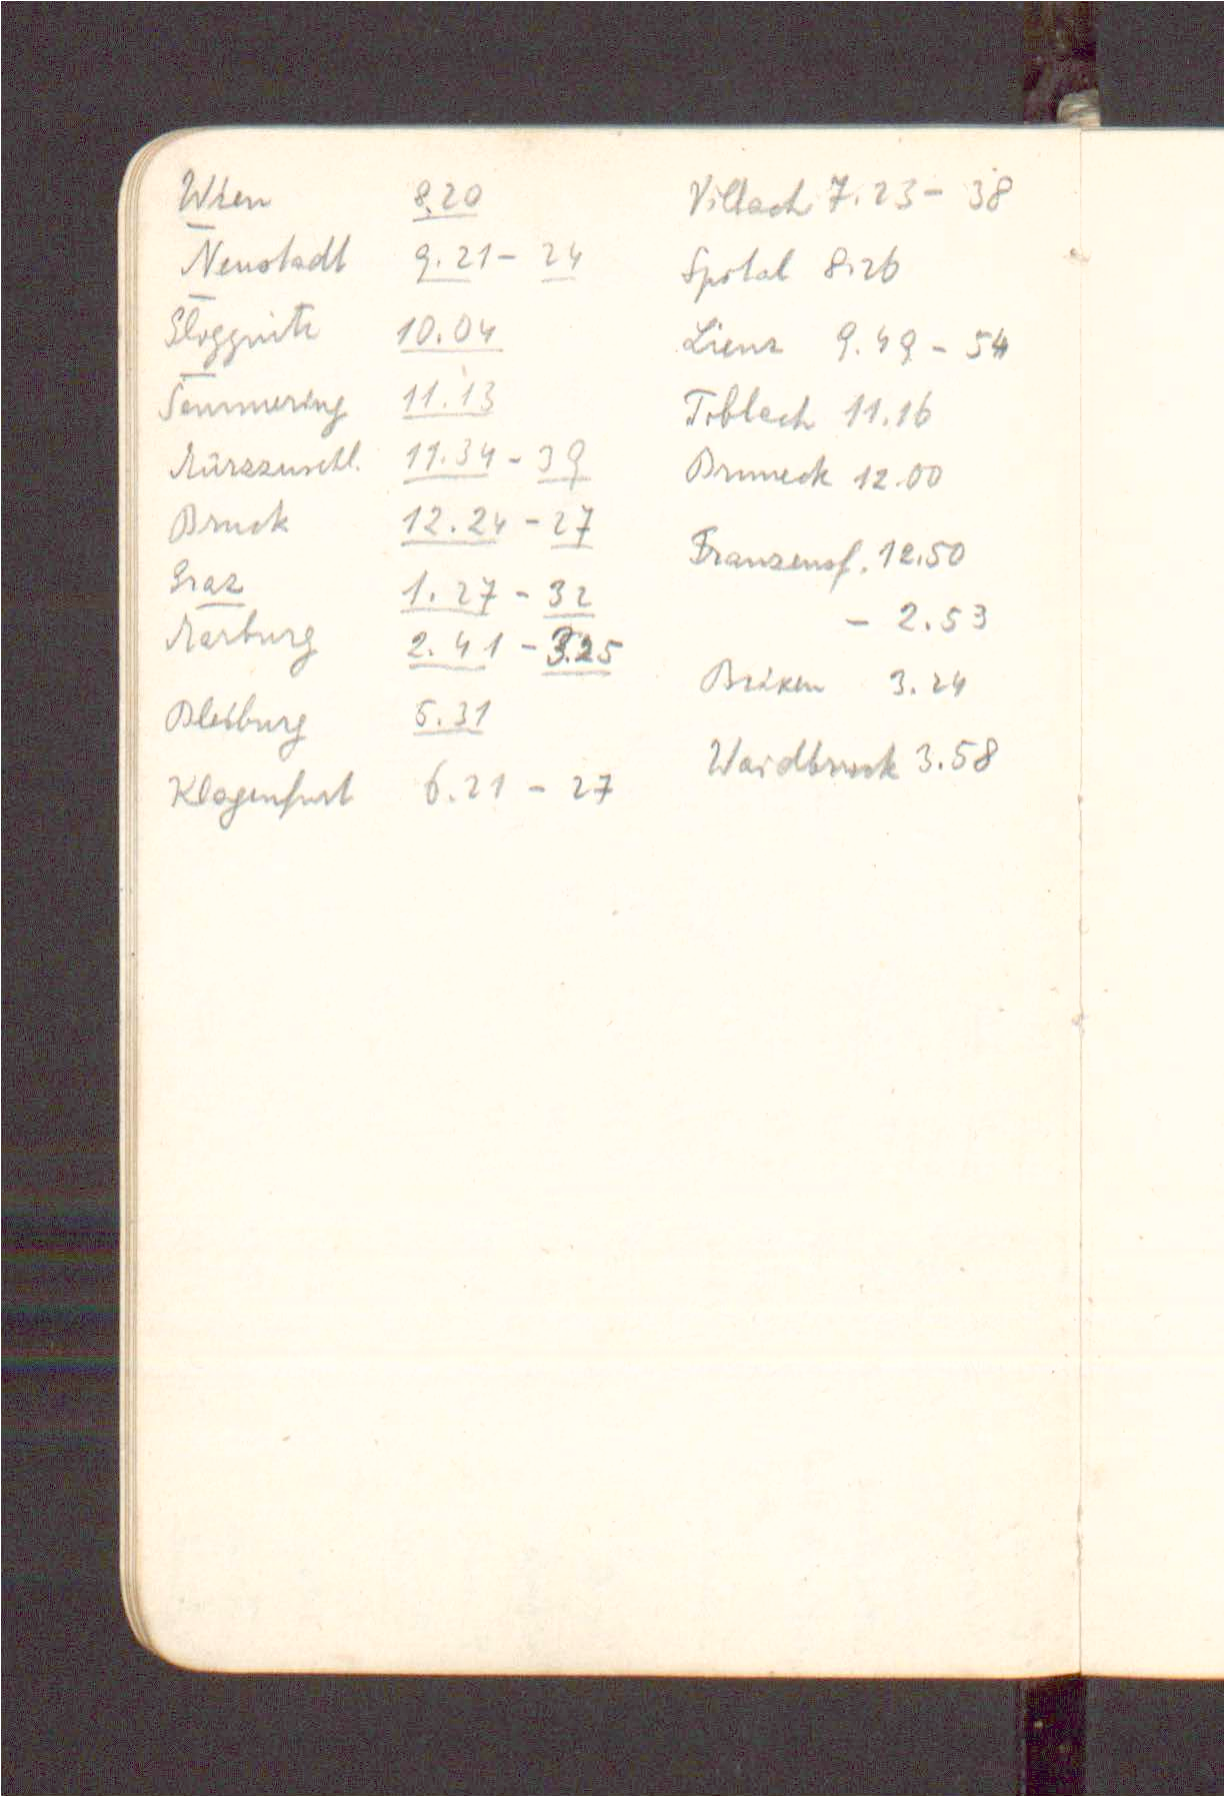 Wien 8.20
Neustadt 9.21 - 24
Gloggnitz 10.04
Semmering 11.13
Mürzzuschl. 11.34 - 39
Bruck 12.24 - 27
Graz 1.27 - 32
Marburg 2.41 - 3.25
Bleiburg 5.31
Klagenfurt 6.21 - 27
Villach 7.23 - 38
Spital 8.26
Lienz 9.49 - 54
Toblach 11.16
Bruneck 12.00
Franzensf. 12.50
- 2.53
Brixen 3.24
Waidbruck 3.58